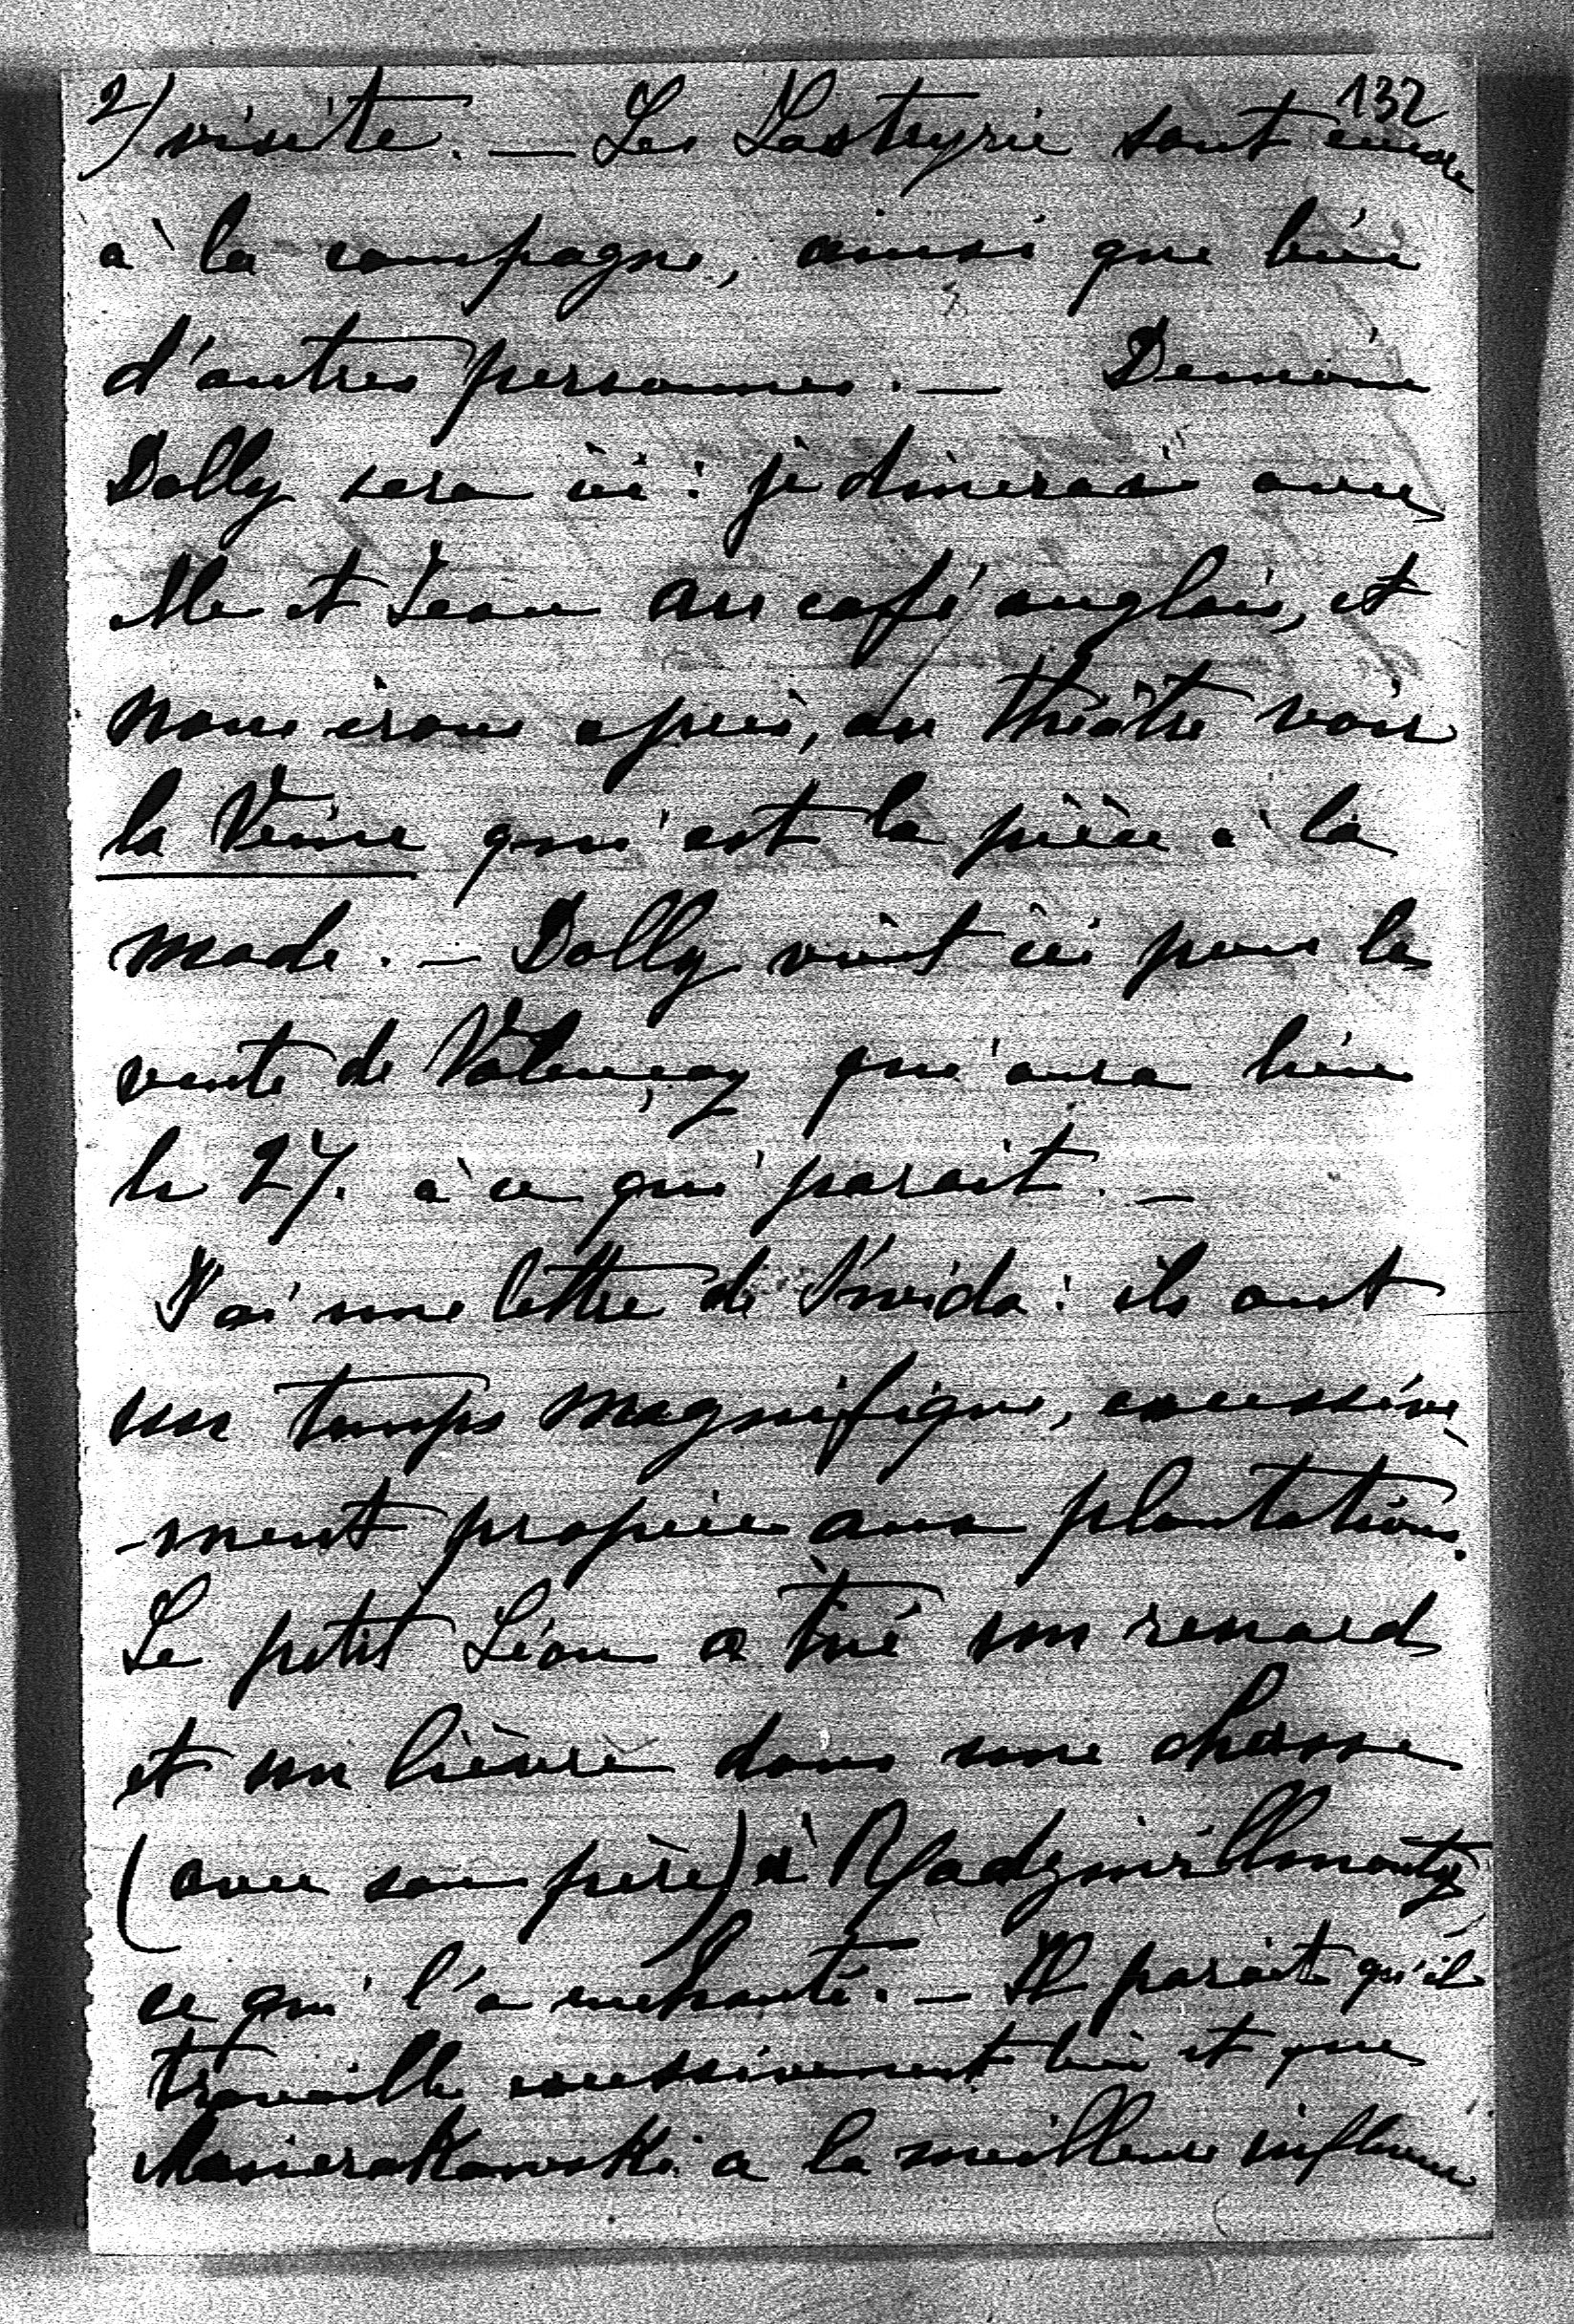 132
2) visite. — Les Lasteyrie sont encore
à la campagne, ainsi que bien
d'autres personnes. — Demain
Dolly sera ici : je dinerai avec
elle et Jean au café anglais, et
nous irons après, au théâtre voir
la Veine qui est la pièce à la
mode. — Dolly vient ici pour la
vente de Valençay qui aura lieu
le 27. à ce qui parait. —
J'ai une lettre de : ils ont
un temps magnifique, excessive
-ment propice aux plantations.
Le petit Léon a tué un renard
et un lièvre dans une chasse
(avec son père) à Radziwillmonty
ce qui l'a enchanté. — Il parait qu'il
travaille excessivement bien et que
a la meilleure influence